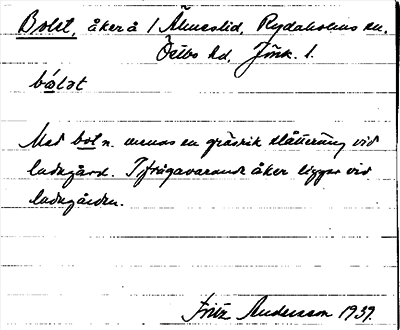 Bolet, åker å 1 Älmeslid, Rydaholms sn,
Östbo hd, Jönk. l.
bɷlət
Med bol n. menas en gräsrik slåtteräng vid
ladugård. Ifrågavarande åker ligger vid
ladugården.
Fritz Andersson 1939.